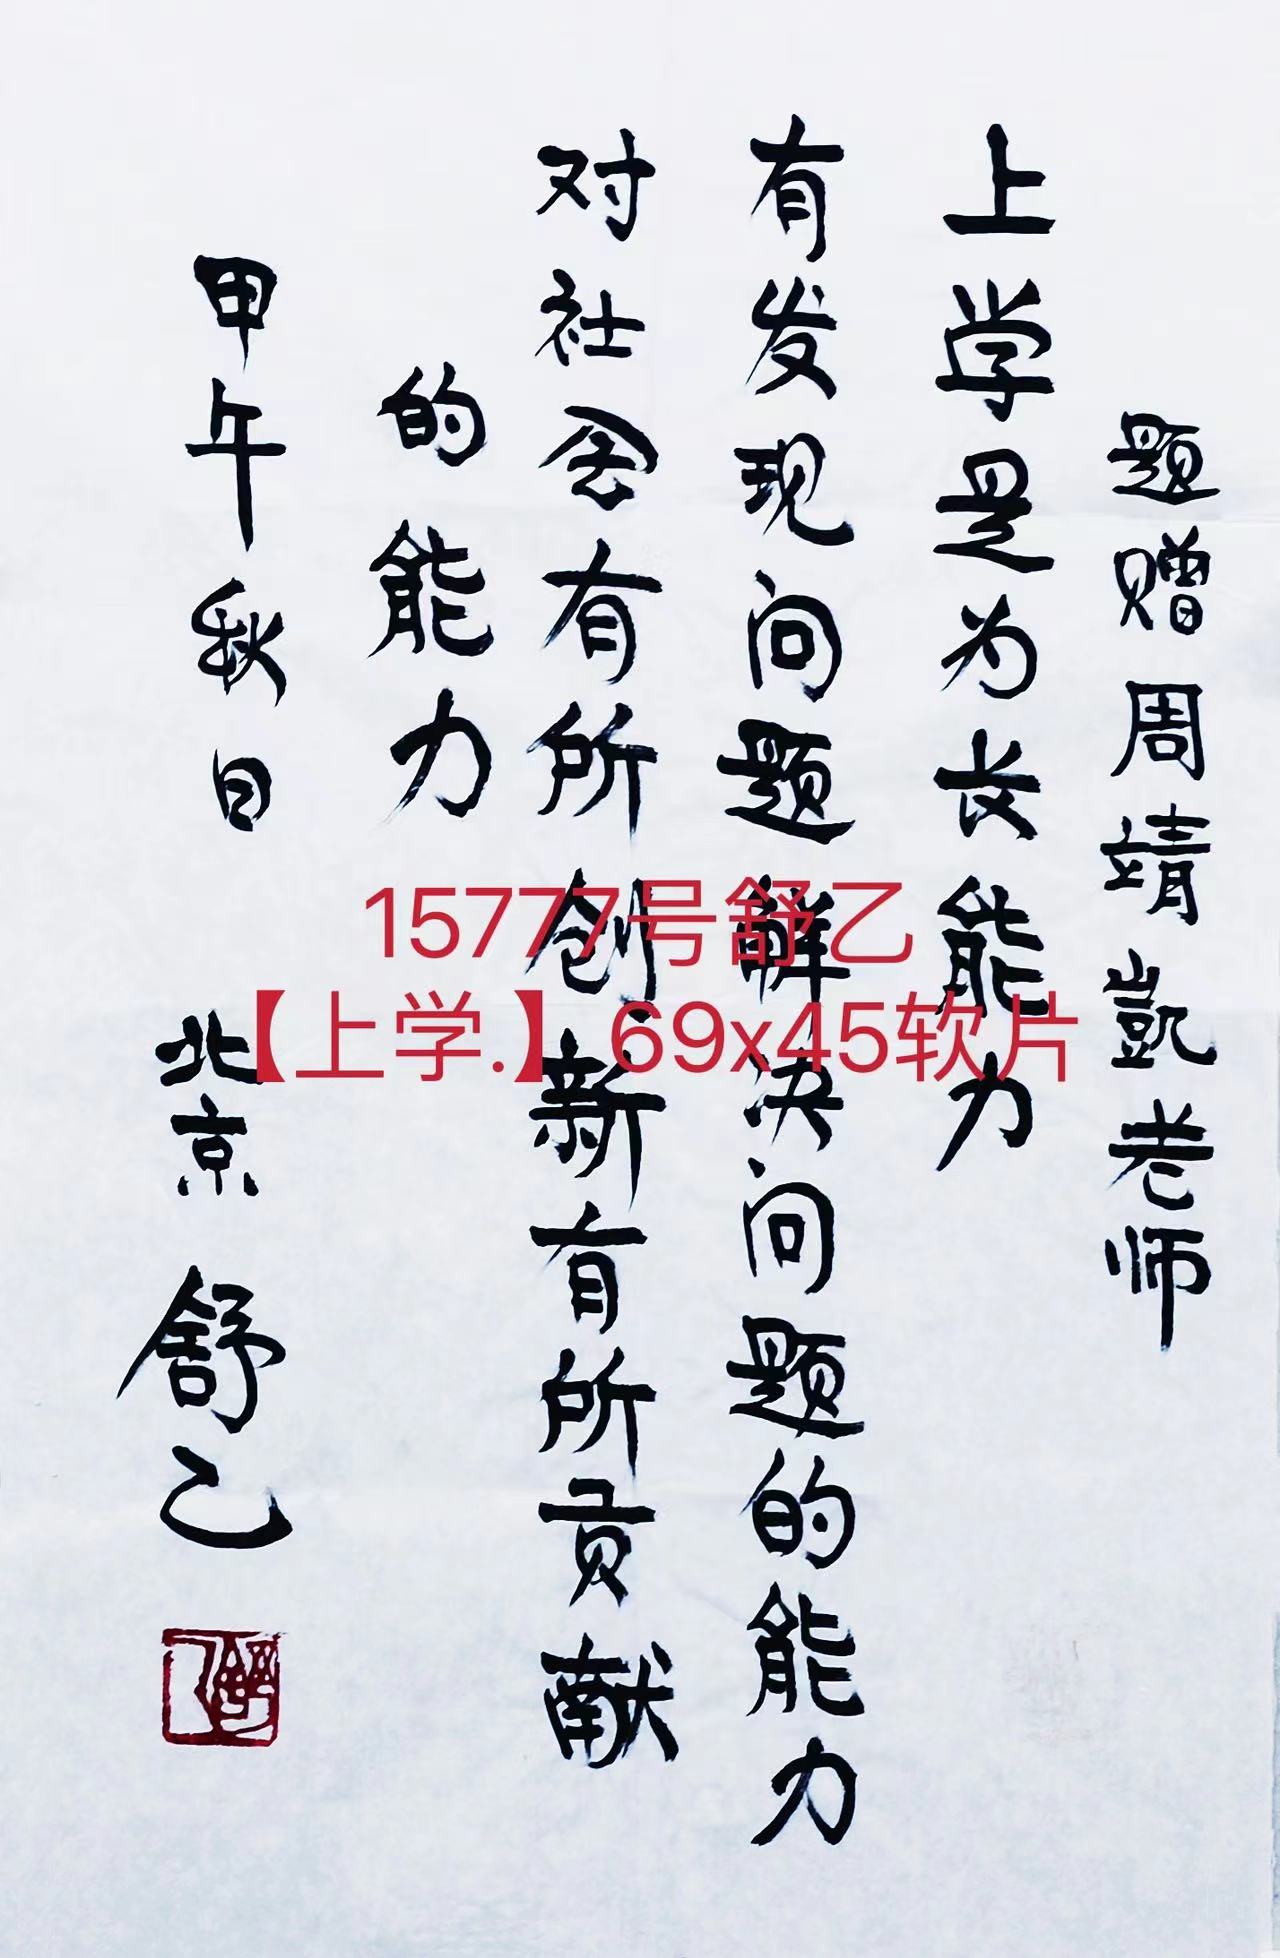 题赠周靖凯老师
上学是为长能力
有发现问题解决问题的能力
对社会有所创新有所贡献
的能力
甲午秋日 北京 舒乙
15777号舒乙
【上学.】69x45软片